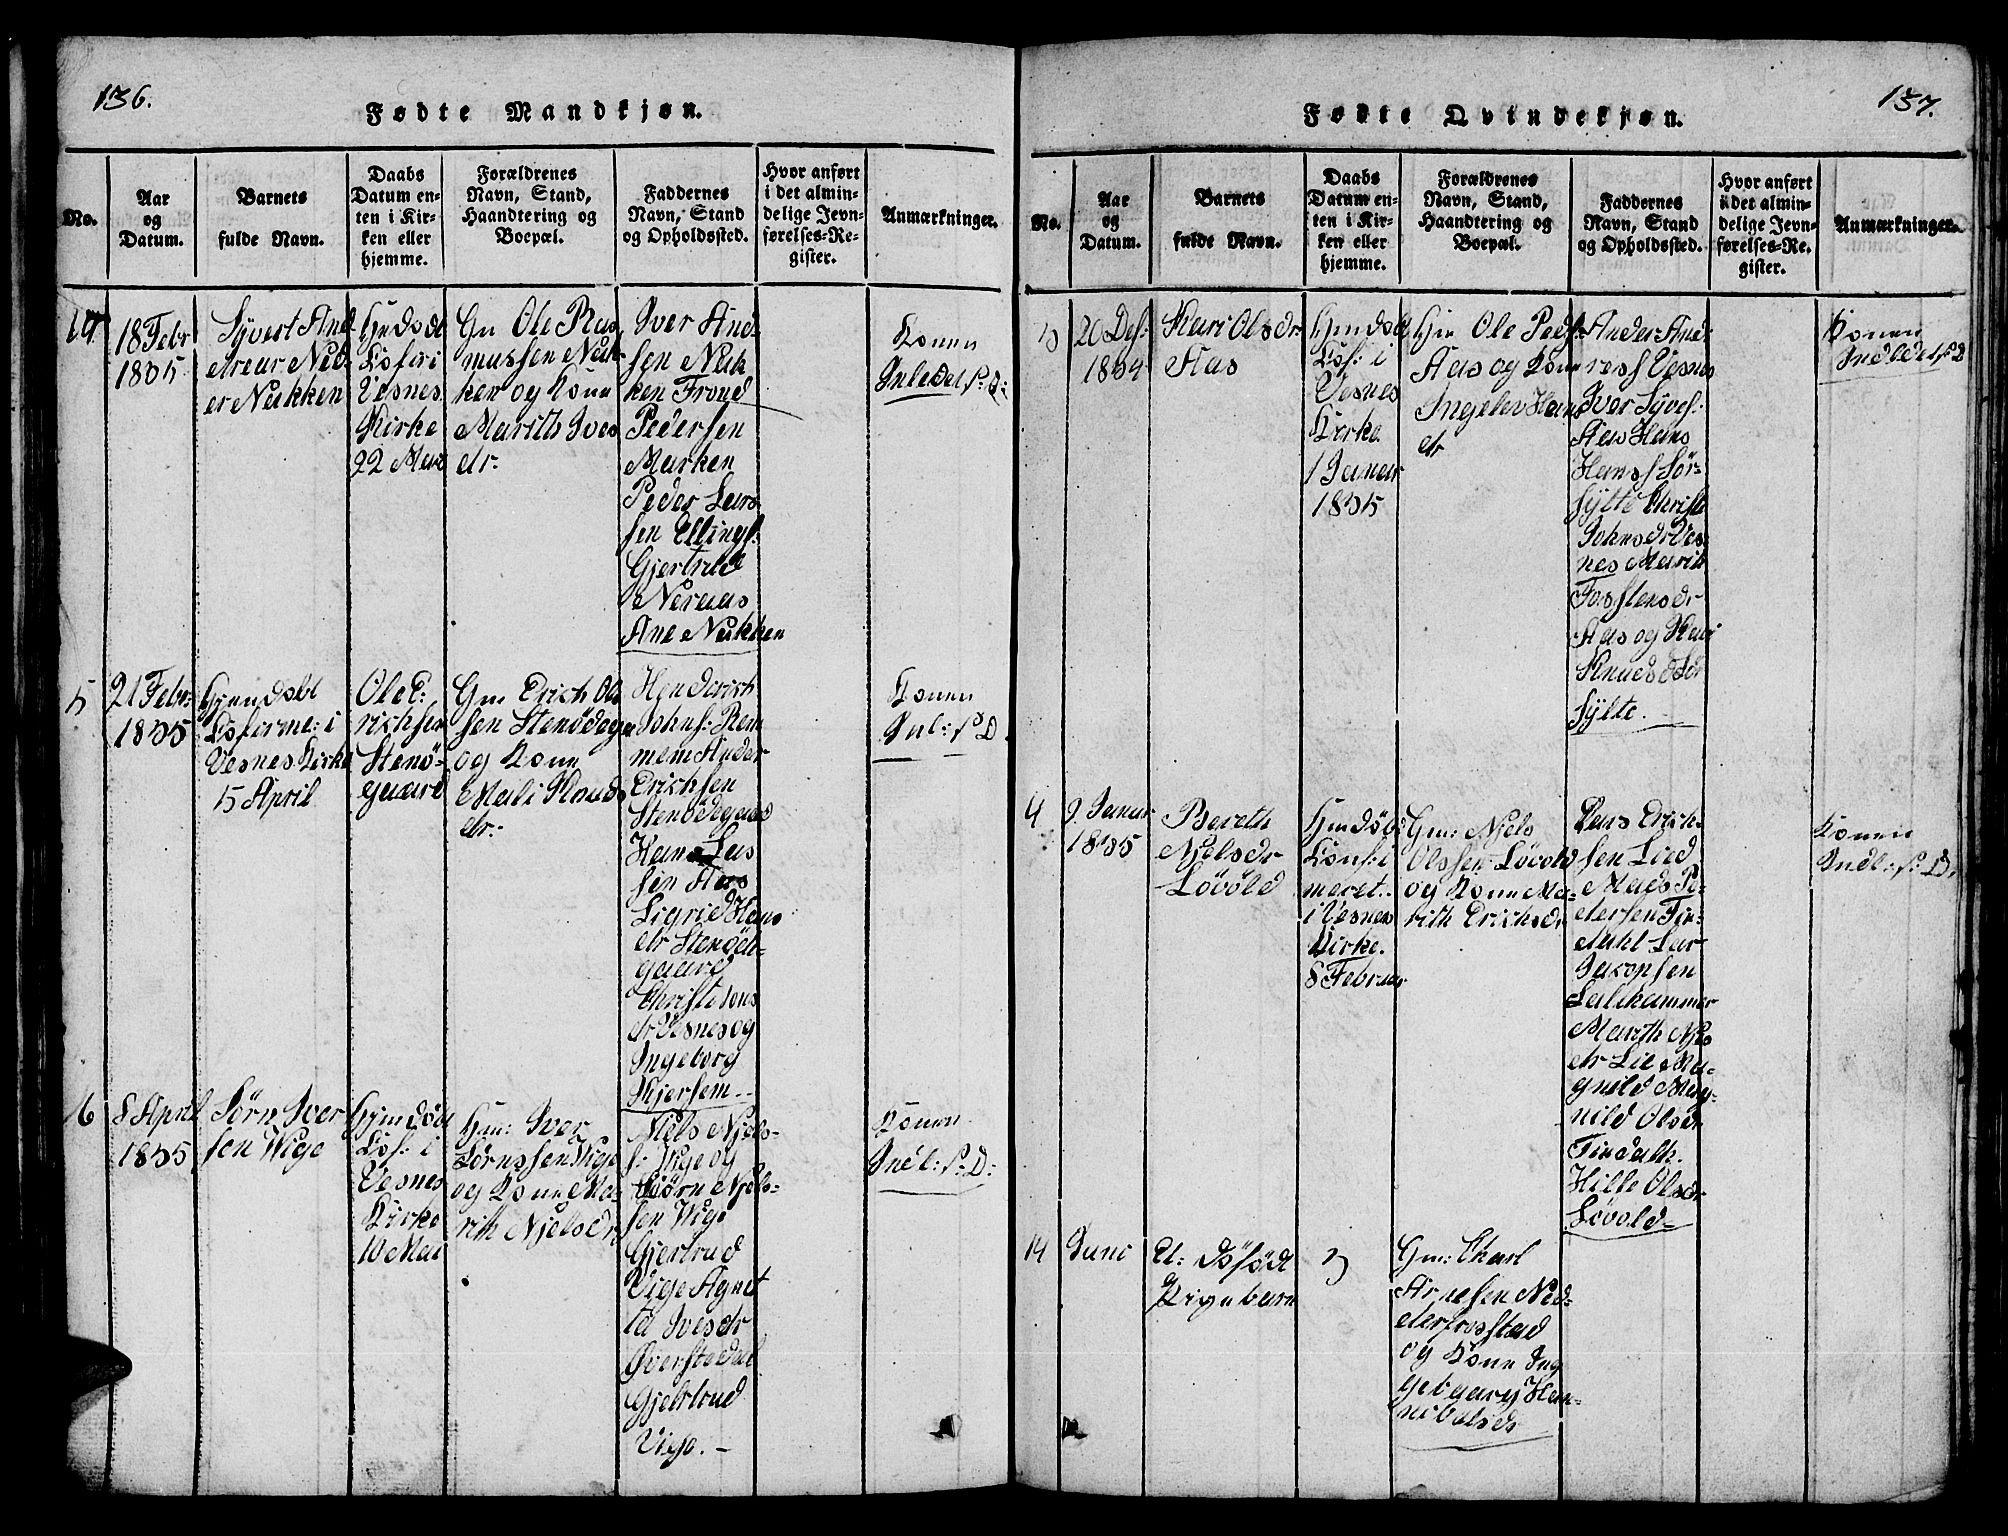 136.
Fødte Mandkjøn.
No.
Aar
og
Datum.
Barnets
fulde Navn.
Daabs
Datum en-
ten i Kir-
ken eller
hjemme.
Forældrenes
Navn, Stand,
Haandtering og
Boepæl.
Faddernes
Navn, Stand
og Opholdssted.
Hvor anført
i det almin-
delige Jevn-
førelses-Re-
gister.
Anmærkninger.
18 Febr
1835
Syvert And
er Nukken
i
Vesnes
Kirke
22 Mar
Gm Ole Ras
mussen Nuk-
ken og Kone
Marith Ives
dr.
Iver And
sen Nuk
ken Trond
Pedersen
Marken
Peder Lars
sen Ellings:
Gjertrud
Neraas
Ane Nukken
Konen
Inledet f: D:
5
21 Febr:
1835
i
Vesnes Kirke
15 April
Ole E:
richsen
Stenø-
gaard
Gm Erich Ols
sen Stenødegar
og Kone
Mali Knuds
dr.
Henderich
Johns: Rem
mem Ander
Erichsen
Stenødegaard
Hans Las
sen Aas
Sigrid Hans
dr Stenød-
gaard
Christe Jons
dr Vesnes og
Ingeborg
Kjersem
Konen
Inl: f D.
6
8 April
1835
Sørn Iver
sen Wige
i
Vesnes
Kirke
10 Mai
Gm: Iver
Sørnssen Wige
og Kone Ma-
rith Njelsdr
Niels Njels-
s: Wige og
Sørn Njels-
sen Wige
Gjertrud
Vige Agnet
ta Ivesdr
Øverstedal
Gjelstrud
Vige.
Konen
Indl: f: D:
137.
Fødte Qvindekjøn.
No.
Aar
og
Datum.
Barnets
fulde Navn.
Daabs
Datum en-
ten i Kir-
ken eller
hjemme.
Forældrenes
Navn, Stand,
Haandtering og
Boepæl.
Faddernes
Navn, Stand
og Opholdssted.
Hvor anført
i det almin-
delige Jevn-
førelses-Re-
gister.
Anmærkninger.
3
20 Des:
1834
Kari Olsdr
Aas
i
Vesnes
Kirke
1 Januar
1835
Gm Ole Peds
Aas og Kone
Ingelev Hans
dr
Ander And
ress Vesnes
Iver Syves:
Aas Hans
Hanss Sør-
sylte Christe
Johnsdr Ves
nes Marith
Torstensdr
Aas og Kari
Knudsd Sør
Sylte.
Konen
Indledet f: D
4
9 Januar
1835
Bereth
Njelsdr
Løvold
Hmdøbt
Conf: i
meret
i Vesnes
Kirke.
8 Februar
Gm: Njels
Olssen Løvold
og Kone Ma-
rith Erichsdr
Jens Erich-
sen Lied
Mads Pe-
dersen Tin-
dahl Lar
Jacopsen
Salthammer
Marith Njls
dr Lie Ma-
gnild Mag-
nild Olsdr
Tindalh.
Hille Olsdr
Løvold
Konen
Indl: f: D.
14
Juni
Et: døfødt
Pigebarn
Gm: Charl
Arnesen Ned-
derfrostad
og Kone Ing
gebaarg Han-
nibalsdr